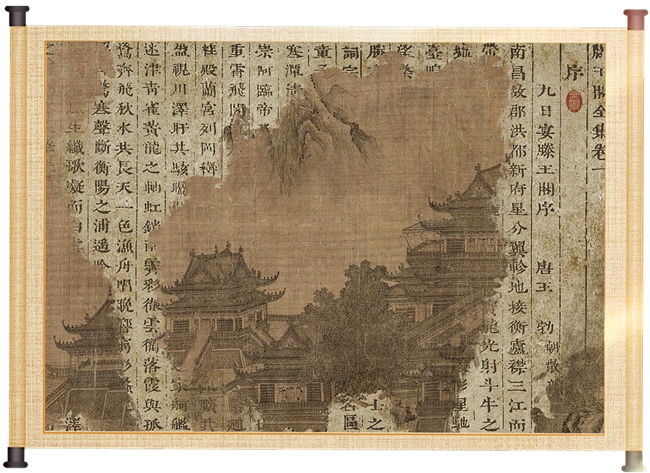 滕王閣全集卷一
序
九日宴滕王閣序 唐王勃 朝散
南昌故郡洪都新府星分翼軫地接衡廬襟三江而
帶 龍光射斗牛之
墟 星馳
臺隍
望
勝 士之
詞宗 名區
童
寒潭清
崇阿臨帝
重霄飛閣
桂殿蘭宮列岡巒 曠其
盈視川澤盱其駭矚 家舸艦
迷津青雀黃龍之軸虹銷雨霽彩徹雲衢落霞與孤
鶩齊飛秋水共長天一色漁舟唱晚響窮彭蠡
寒聲斷衡陽之浦遙吟
生纖歌凝而白 澤